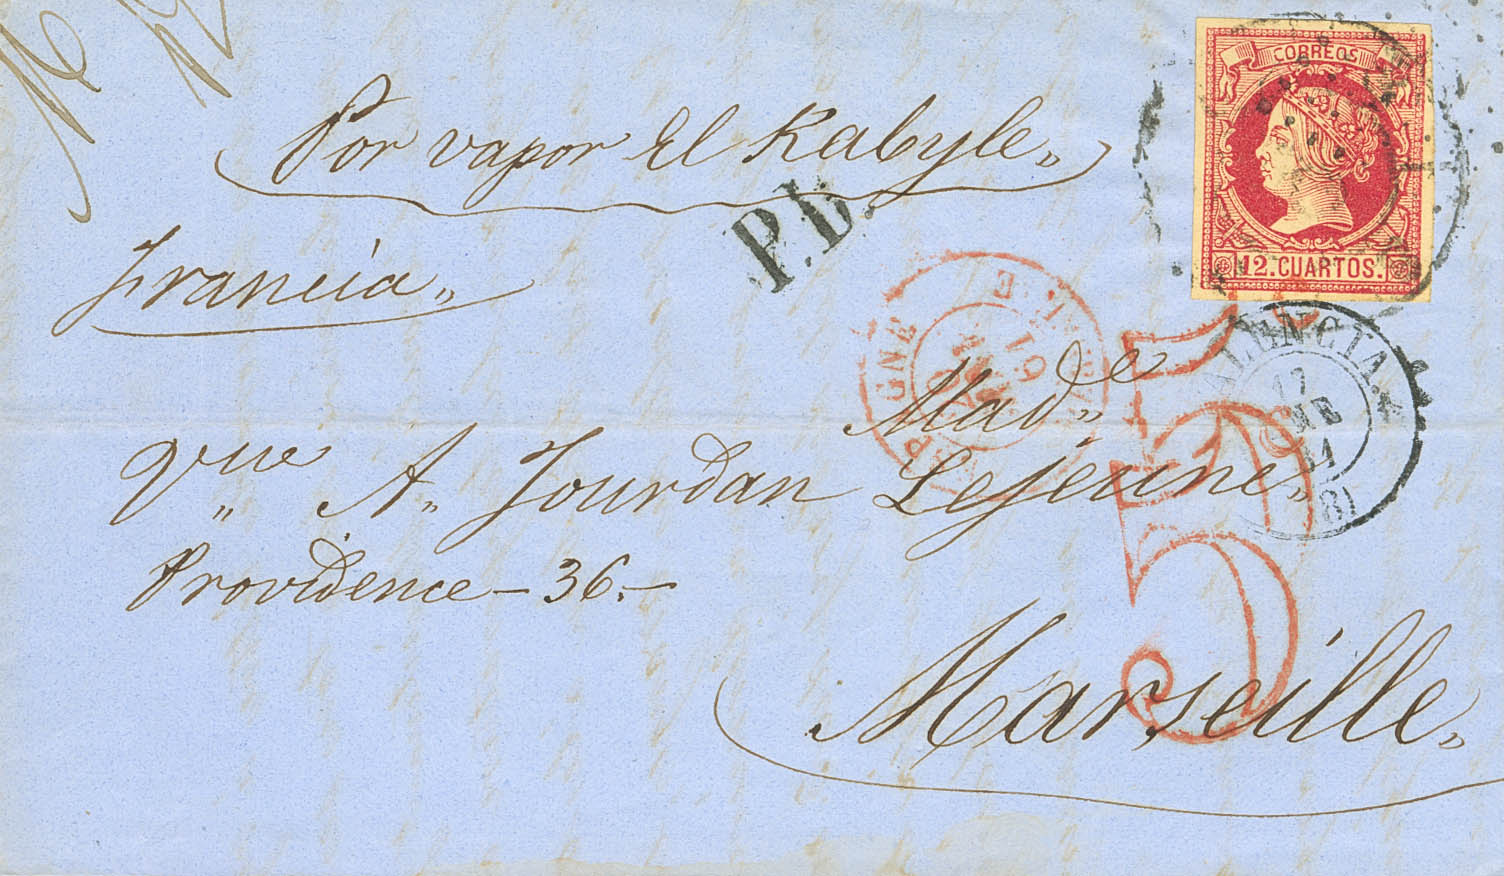 CORREOS
12. CUARTOS.
Por vapor El Kabyle
P.D.
Francia
VALENCIA
17
61
(8)
Mad.e
V.ue A. Jourdan Lejeune
Providence - 36 -
5
Marseille